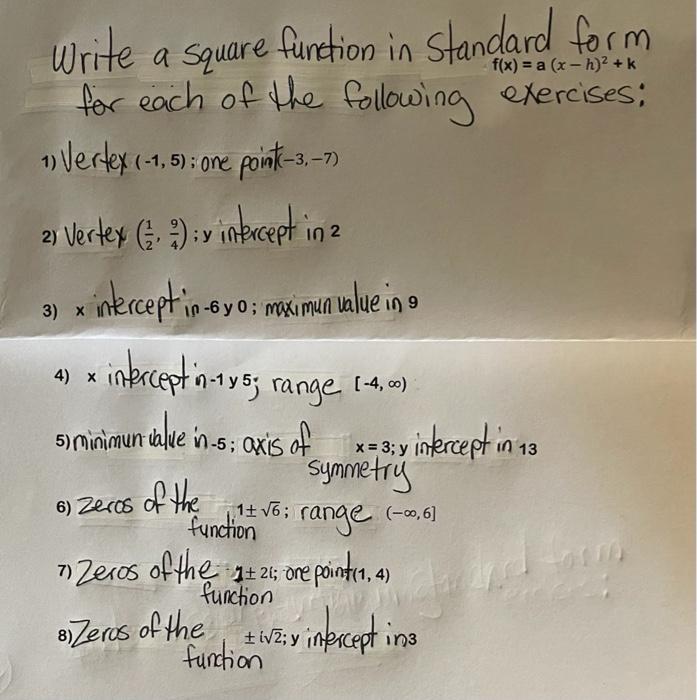 Write a square function in Standard form
f(x) = a (x – h)² + k
for each of the following exercises:
1) Vertex (-1, 5); one point(–3, –7)
2) Vertex (1/2, 9/4); y intercept in 2
3) x intercept in -6 y 0; maximun value in 9
4) x intercept in -1 y 5; range [-4, ∞)
5) minimun value in -5; axis of x = 3; y intercept in 13
symmetry
6) Zeros of the 1± √6; range (-∞, 6]
function
7) Zeros of the 1± 2i; one point(1, 4)
function
8) Zeros of the ± i√2; y intercept in 3
function